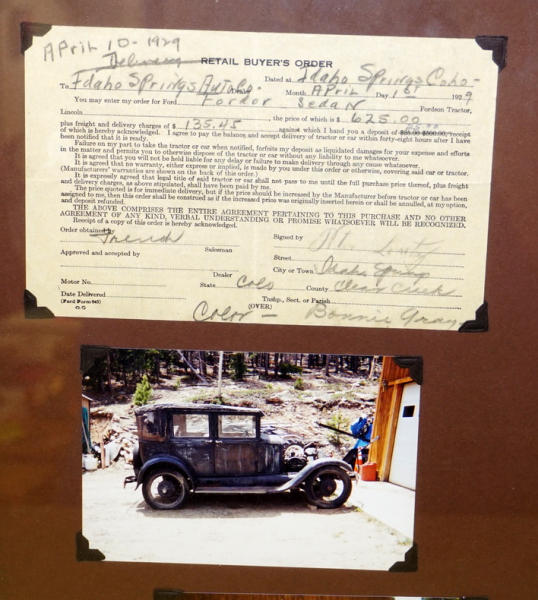 April 10-1929
Delivery RETAIL BUYER'S ORDER
Dated at Idaho Springs Colo-
To Idaho Springs Auto Co. Month April Day 1st 1929
You may enter my order for Ford Fordor Sedan Fordson Tractor,
Lincoln , the price of which is $ 625.00
plus freight and delivery charges of $ 135.45 against which I hand you a deposit of receipt
of which is hereby acknowledged. I agree to pay the balance and accept delivery of tractor or car within forty-eight hours after I have
been notified that it is ready.
Failure on my part to take the tractor or car when notified, forfeits my deposit as liquidated damages for your expense and efforts
in the matter and permits you to otherwise dispose of the tractor or car without any liability to me whatsoever.
It is agreed that you will not be held liable for any delay or failure to make delivery through any cause whatsoever.
It is agreed that no warranty, either express or implied, is made by you under this order or otherwise, covering said car or tractor.
(Manufacturers' warranties are shown on the back of this order.)
It is expressly agreed that legal title of said tractor or car shall not pass to me until the full purchase price thereof, plus freight
and delivery charges, as above stipulated, shall have been paid by me.
The price quoted is for immediate delivery, but if the price should be increased by the Manufacturer before tractor or car has been
assigned to me, then this order shall be construed as if the increased price was originally inserted herein or shall be annulled, at my option,
and deposit refunded.
THE ABOVE COMPRISES THE ENTIRE AGREEMENT PERTAINING TO THIS PURCHASE AND NO OTHER
AGREEMENT OF ANY KIND, VERBAL UNDERSTANDING OR PROMISE WHATSOEVER WILL BE RECOGNIZED.
Receipt of a copy of this order is hereby acknowledged.
Order obtained by French Salesman
Signed by
Approved and accepted by
Street
Dealer City or Town Idaho Springs
Motor No. State Colo County Clear Creek
Date Delivered Tnshp., Sect. or Parish
(Ford Form 940) (OVER)
Color - Bonnie Gray.